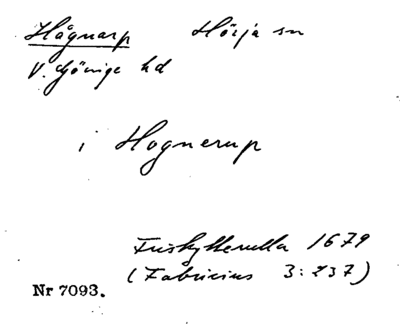 Hågnarp Hörja sn
V. Göinge hd
i Hognerup
Friskytterulla 1679
(Fabricius 3:237)
Nr 7093.